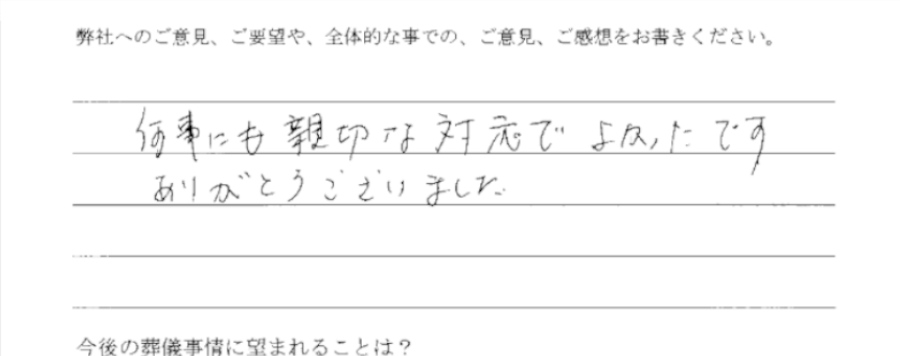 弊社へのご意見、ご要望や、全体的な事での、ご意見、ご感想をお書きください。
何事にも親切な対応でよかったです
ありがとうございました
今後の葬儀事情に望まれることは？